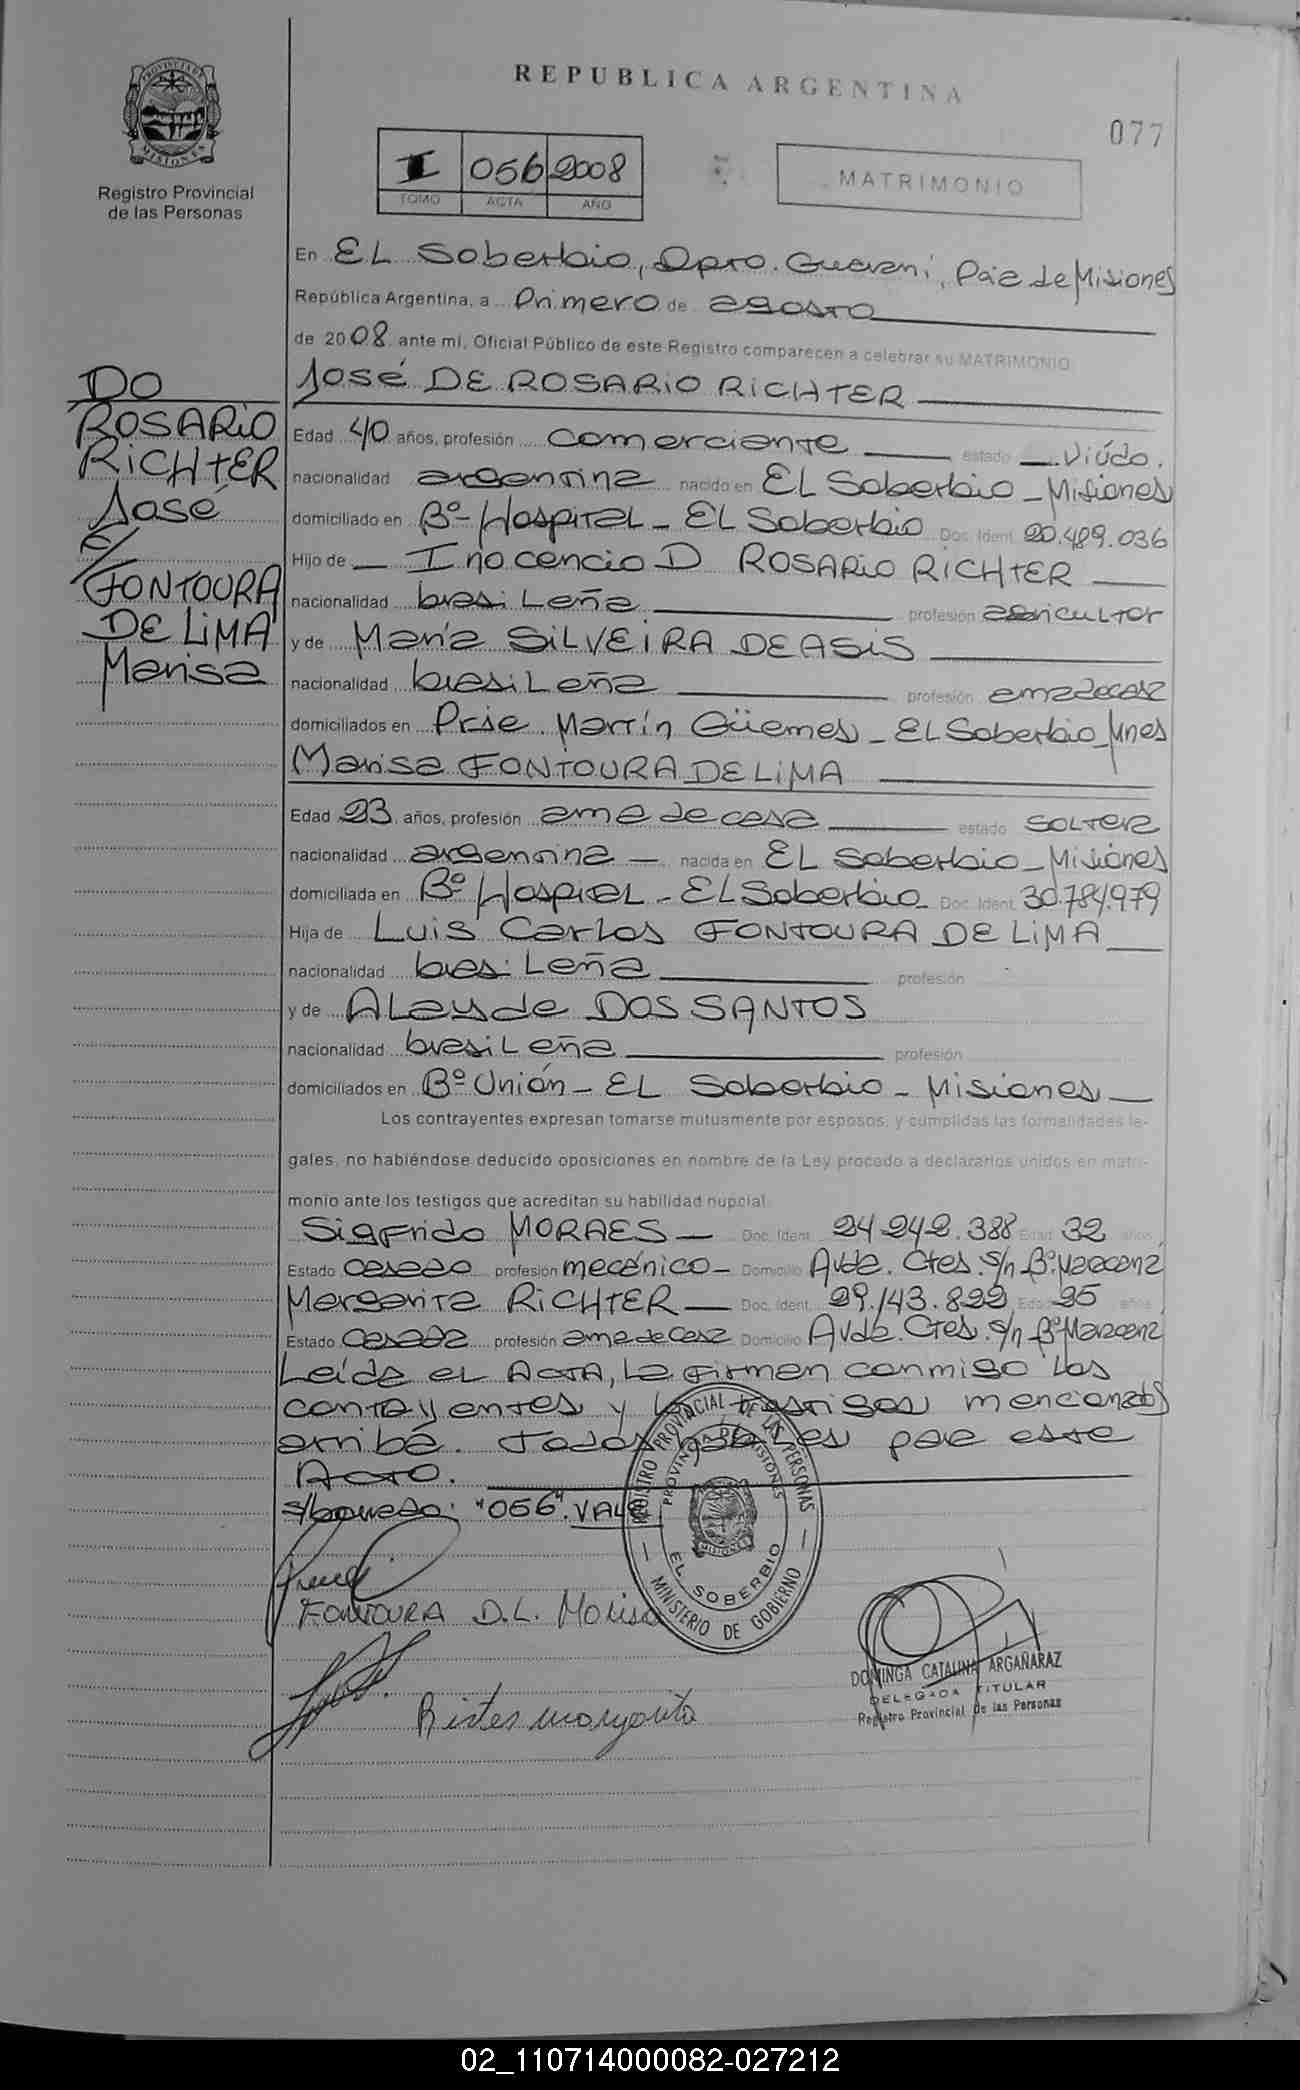 REPUBLICA ARGENTINA
077
PROVINCIA DE
MISIONES
Registro Provincial
de las Personas
I 056 2008
TOMO ACTA AÑO
MATRIMONIO
En EL Soberbio, Dpto. Guarani, Pcia de Misiones
República Argentina, a Primero de agosto
de 2008 ante mi, Oficial Público de este Registro comparecen a celebrar su MATRIMONIO
José DE ROSARIO RICHTER
DO
ROSARIO
RICHTER
José
c/
FONTOURA
DE LIMA
Marisa
Edad 40 años, profesión comerciante estado Viúdo.
nacionalidad argentina nacido en EL Soberbio - Misiones
domiciliado en Bº- Hospital - EL Soberbio Doc. Ident. 20.489.036
Hijo de Inocencio D ROSARIO RICHTER
nacionalidad brasileña profesión agricultor
y de María SILVEIRA DE ASIS
nacionalidad brasileña profesión ama de casa
domiciliados en Prje Martín Güemes - EL Soberbio - Mnes
Marisa FONTOURA DE LIMA
Edad 23 años, profesión ama de casa estado soltera
nacionalidad argentina nacida en EL Soberbio - Misiones
domiciliada en Bº Hospital - EL Soberbio - Doc. Ident. 30.784.979
Hija de Luis Carlos FONTOURA DE LIMA
nacionalidad brasileña profesión
y de ALayde DOS SANTOS
nacionalidad brasileña profesión
domiciliados en Bº Unión - EL Soberbio - Misiones
Los contrayentes expresan tomarse mutuamente por esposos, y cumplidas las formalidades le-
gales, no habiéndose deducido oposiciones en nombre de la Ley procedo a declararlos unidos en matri-
monio ante los testigos que acreditan su habilidad nupcial.
Sigfrido MORAES - Doc. Ident. 24.242.388 Edad 32 años,
Estado casado profesión mecánico - Domicilio Avda. Ctes. s/n Bº Maracaná
Margarita RICHTER - Doc. Ident. 29.143.822 Edad 25 años,
Estado casada profesión ama de casa Domicilio Avda. Ctes. s/n Bº Maracaná
Leída el ACTA, la firman conmigo los
contrayentes y los testigos mencionados
arriba. Todos hábiles para este
Acto.
s/borrado: "056". VALE
REGISTRO PROVINCIAL DE LAS PERSONAS
PROVINCIA DE MISIONES
MISIONES
EL SOBERBIO
MINISTERIO DE GOBIERNO
FONTOURA D.L. Marisa
DOMINGA CATALINA ARGAÑARAZ
DELEGADA TITULAR
Registro Provincial de las Personas
Rister margarita
02_110714000082-027212